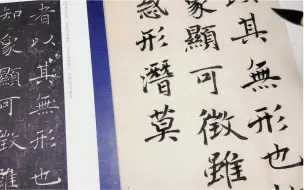 以其無形也
象顯可徵雖
惑形潛莫
者以其無形也
知象顯可徵